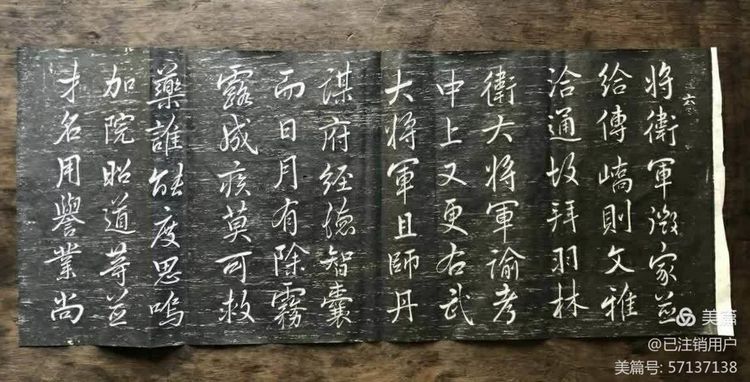 六
將衛軍徵家並
給傳嶠則文雅
洽通故拜羽林
衛大將軍諭考
中上又更右武
大將軍且師丹
謀府經智囊
而日月有除霧
露成疾莫可救
藥誰能度思嗚
加院昭道等並
才名用譽業尚
美篇
@已注销用户
美篇号: 57137138